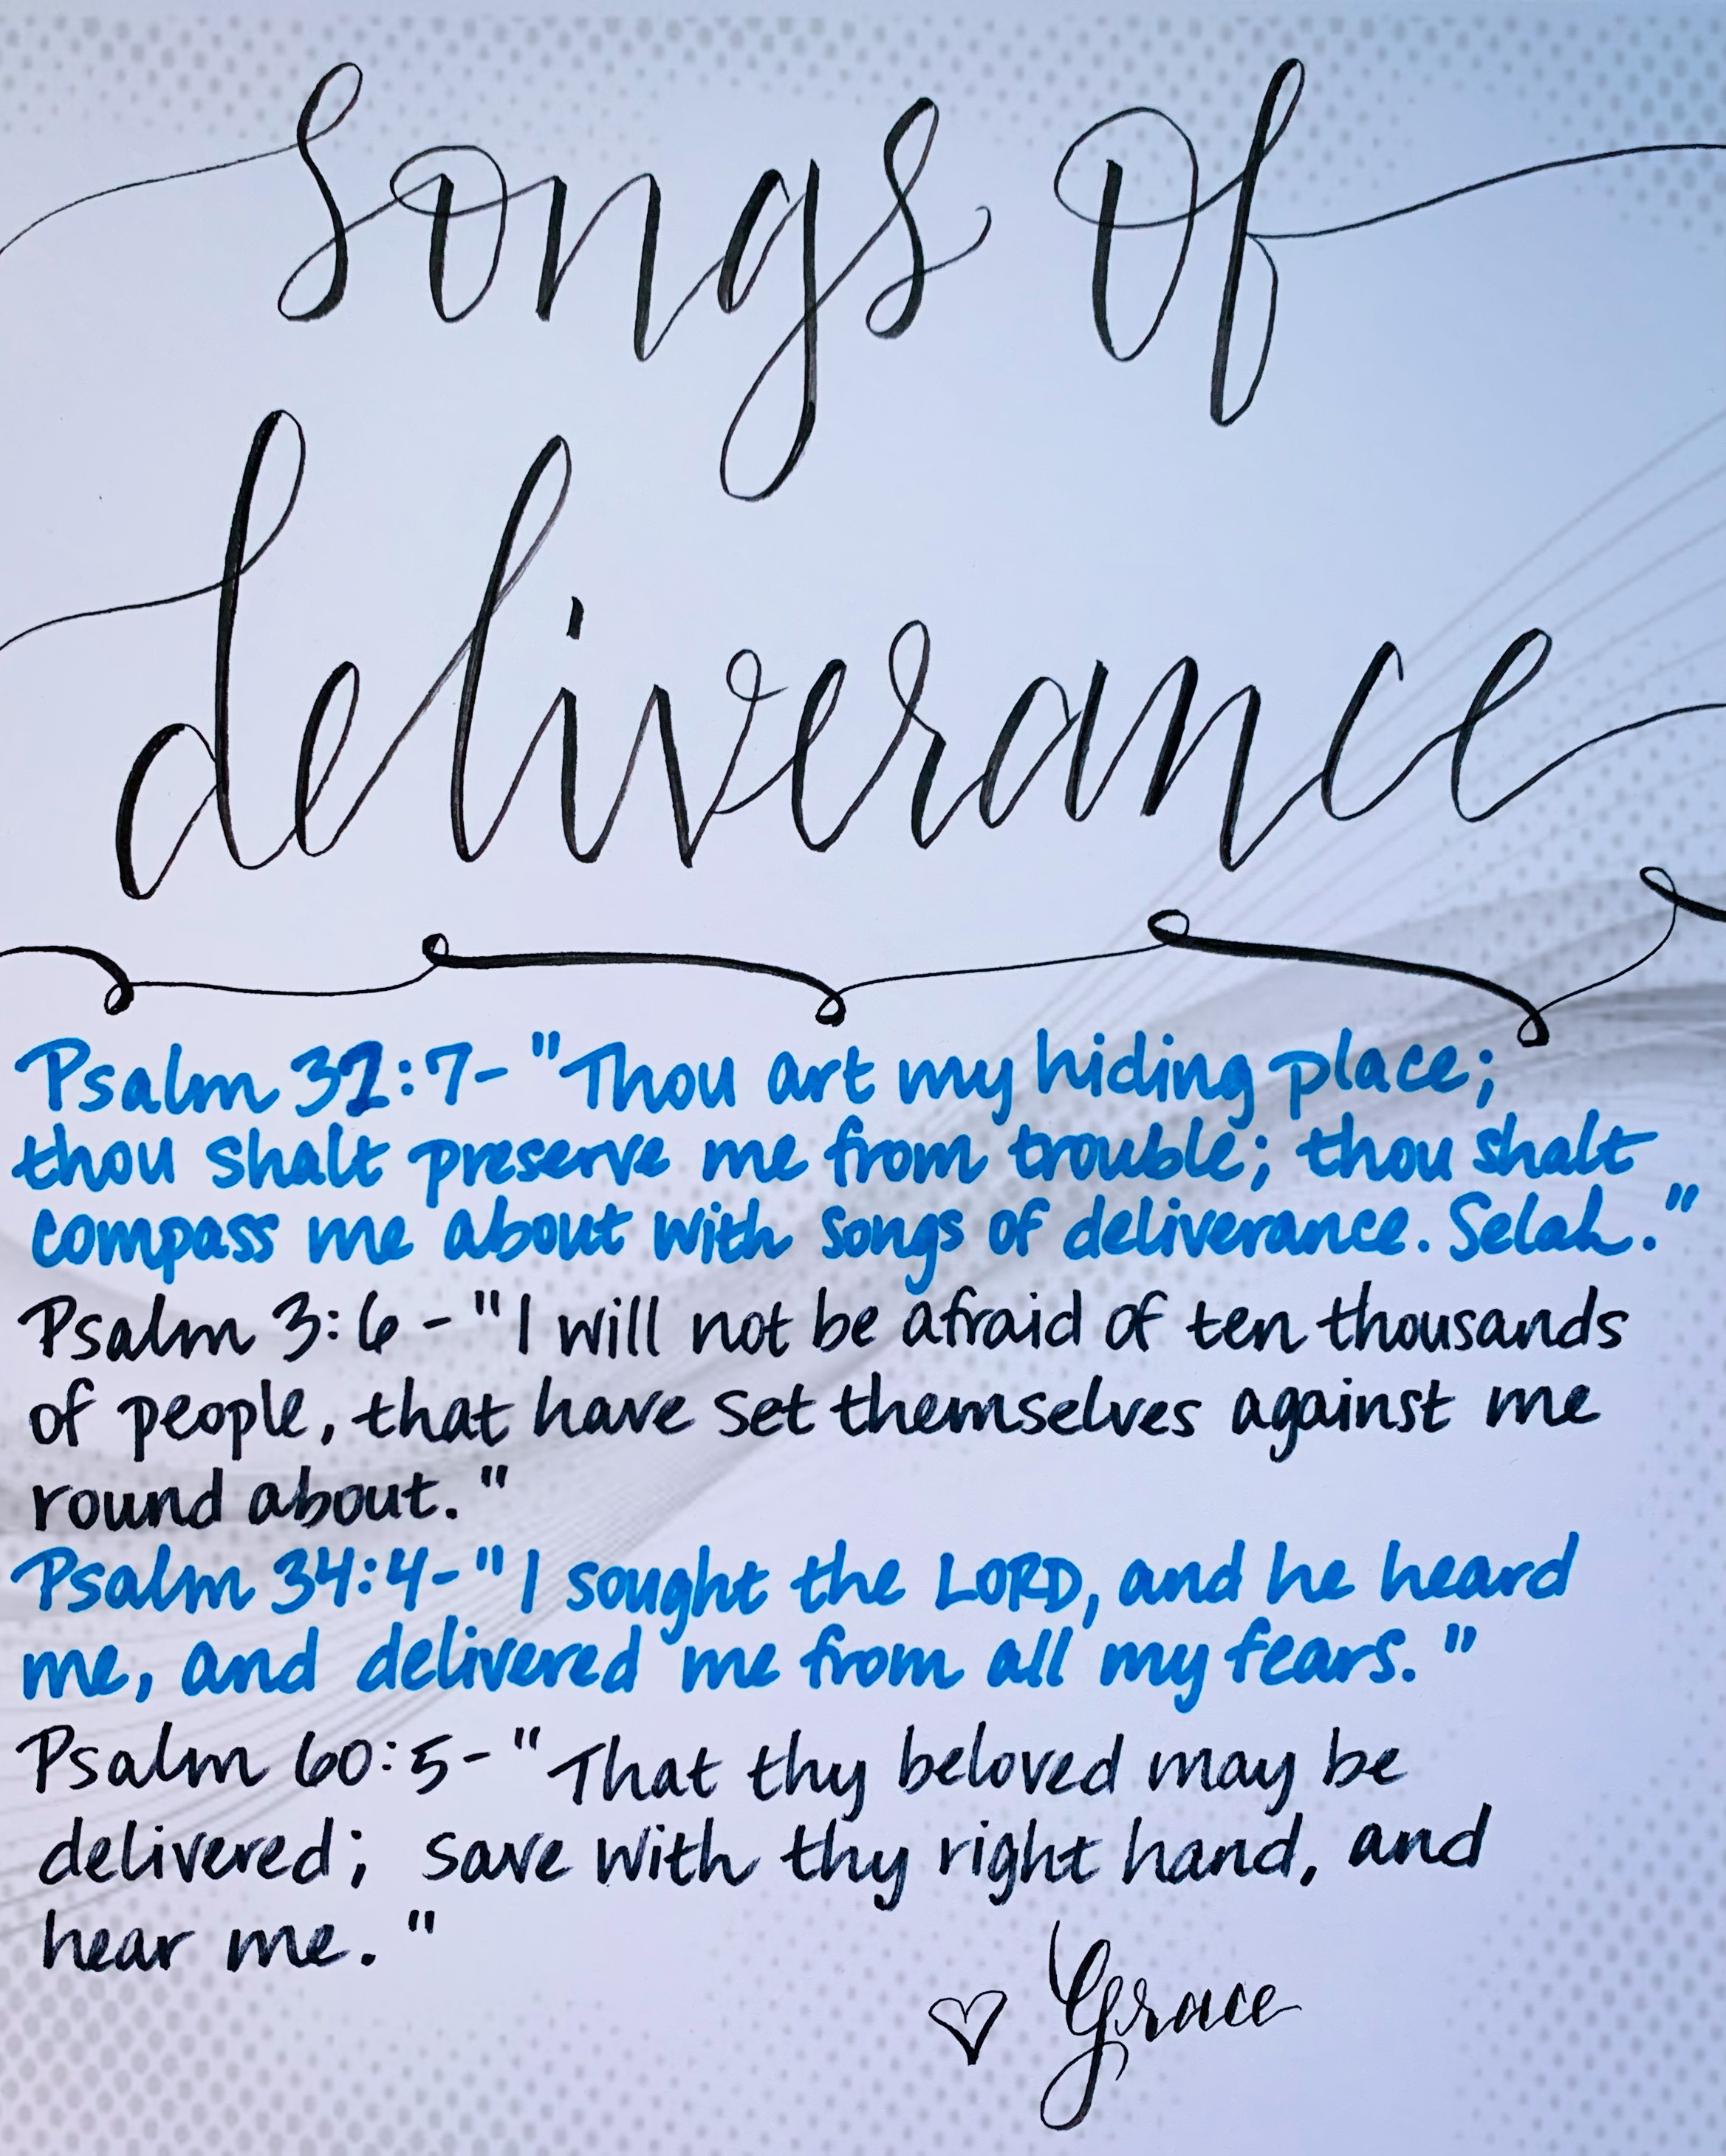 Songs Of
deliverance
Psalm 32:7- "Thou art my hiding place;
thou shalt preserve me from trouble; thou shalt
compass me about with songs of deliverance. Selah."
Psalm 3:6 - "I will not be afraid of ten thousands
of people, that have set themselves against me
round about."
Psalm 34:4- "I sought the LORD, and he heard
me, and delivered me from all my fears."
Psalm 60:5- "That thy beloved may be
delivered; save with thy right hand, and
hear me."
♡ Grace